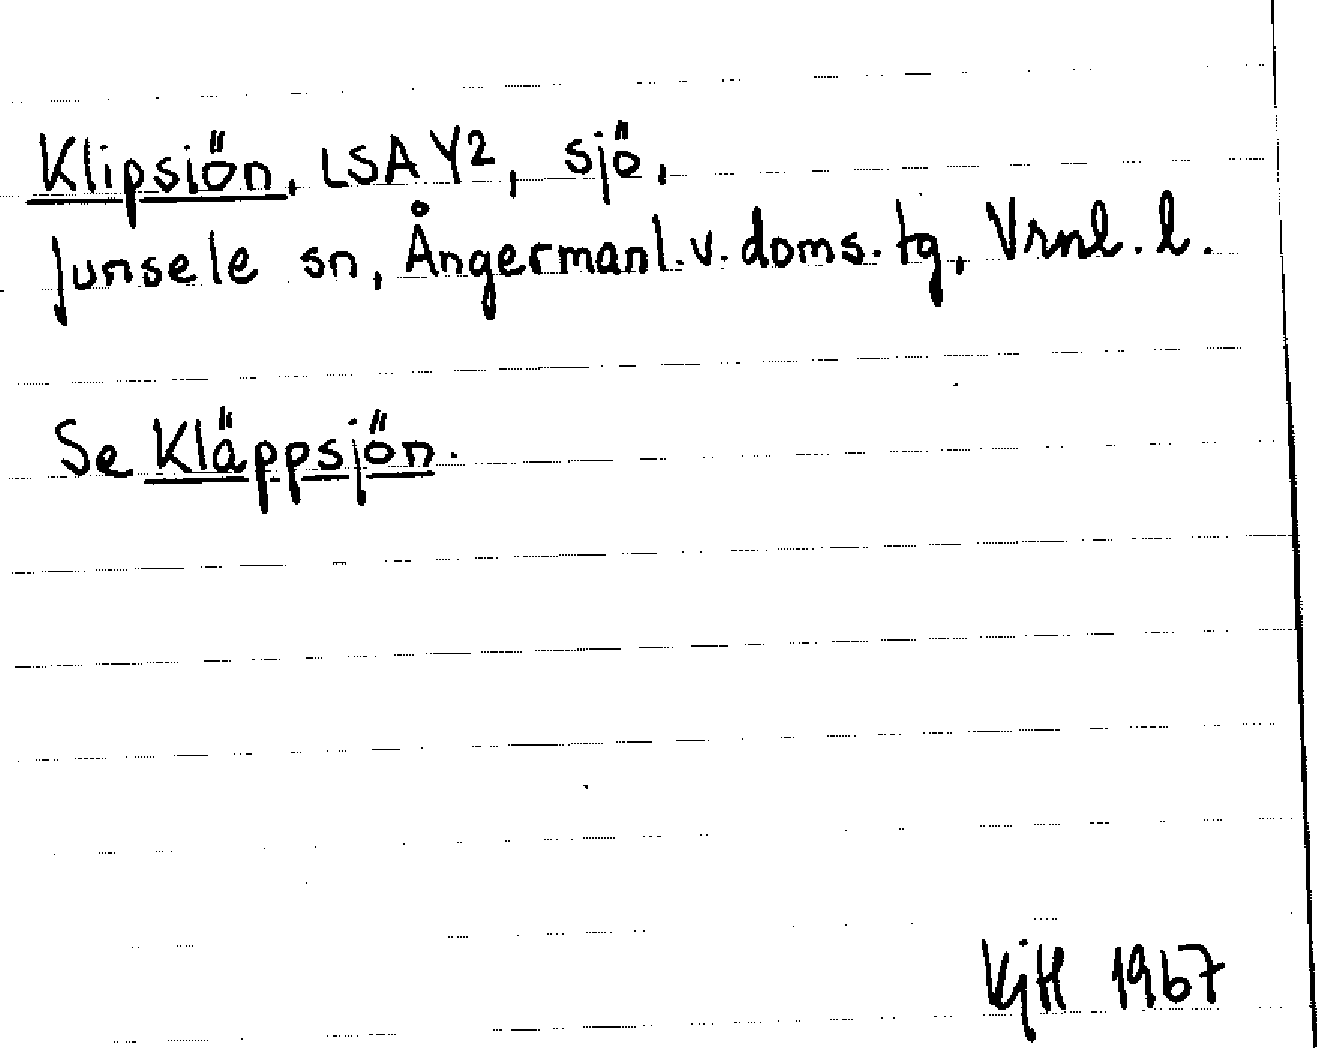 Klipsiön, LSA Y2, sjö,
Junsele sn, Ångermanl. v. doms. tg, Vrnl. l.
Se Kläppsjön.
KjH 1967